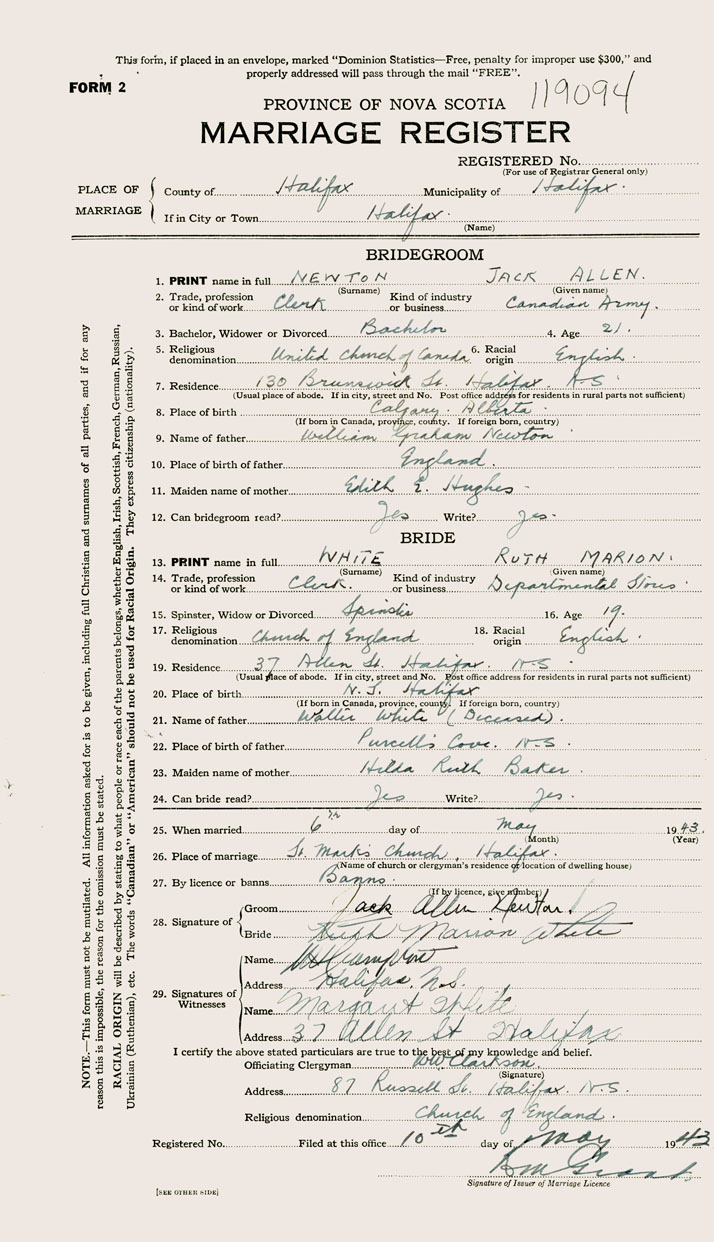 This form, if placed in an envelope, marked "Dominion Statistics—Free, penalty for improper use $300," and
properly addressed will pass through the mail "FREE".
FORM 2
119094
PROVINCE OF NOVA SCOTIA
MARRIAGE REGISTER
REGISTERED No.
(For use of Registrar General only)
PLACE OF MARRIAGE
County of Halifax Municipality of Halifax.
If in City or Town Halifax.
(Name)
BRIDEGROOM
1. PRINT name in full NEWTON JACK ALLEN.
(Surname) (Given name)
2. Trade, profession or kind of work Clerk Kind of industry or business Canadian Army.
3. Bachelor, Widower or Divorced Bachelor 4. Age 21.
5. Religious denomination United Church of Canada 6. Racial origin English.
7. Residence 130 Brunswick St. Halifax. N-S
(Usual place of abode. If in city, street and No. Post office address for residents in rural parts not sufficient)
8. Place of birth Calgary. Alberta.
(If born in Canada, province, county. If foreign born, country)
9. Name of father William Graham Newton
10. Place of birth of father England.
11. Maiden name of mother Edith E. Hughes
12. Can bridegroom read? Yes Write? Yes.
BRIDE
13. PRINT name in full WHITE RUTH MARION.
(Surname) (Given name)
14. Trade, profession or kind of work Clerk. Kind of industry or business Departmental Stores
15. Spinster, Widow or Divorced Spinster 16. Age 19.
17. Religious denomination Church of England 18. Racial origin English.
19. Residence 37 Allen St. Halifax. N-S
(Usual place of abode. If in city, street and No. Post office address for residents in rural parts not sufficient)
20. Place of birth N.S. Halifax
(If born in Canada, province, county. If foreign born, country)
21. Name of father Walter White (Deceased).
22. Place of birth of father Purcell's Cove. N-S.
23. Maiden name of mother Hilda Ruth Baker.
24. Can bride read? Yes Write? Yes.
25. When married 6th day of May 1943.
(Month) (Year)
26. Place of marriage St. Mark's Church, Halifax.
(Name of church or clergyman's residence or location of dwelling house)
27. By licence or banns Banns.
(If by licence, give number)
28. Signature of
Groom Jack Allen Newton.
Bride Ruth Marion White
29. Signatures of Witnesses
Name
Address Halifax. N.S.
Name Margaret White
Address 37 Allen St Halifax
I certify the above stated particulars are true to the best of my knowledge and belief.
Officiating Clergyman WW Clarkson.
(Signature)
Address 87 Russell St. Halifax. N-S.
Religious denomination Church of England.
Registered No. Filed at this office 10th day of May 1943
Signature of Issuer of Marriage Licence
[SEE OTHER SIDE]
NOTE.—This form must not be mutilated. All information asked for is to be given, including full Christian and surnames of all parties, and if for any
reason this is impossible, the reason for the omission must be stated.
RACIAL ORIGIN will be described by stating to what people or race each of the parents belongs, whether English, Irish, Scottish, French, German, Russian,
Ukrainian (Ruthenian), etc. The words "Canadian" or "American" should not be used for Racial Origin. They express citizenship (nationality).